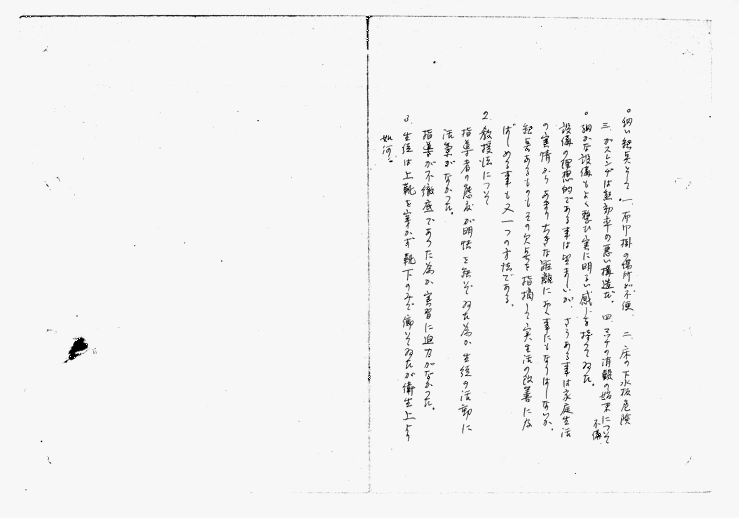 。細い缺点として 一、布巾掛の場所が不便、 二、床の下水板危険
三、ガスレンヂは熱効率の悪い構造だ。 四、マッチの消殻の始末について不備
。細かな設備もよく整ひ実に明るい感じを持ってゐた。
設備の理想的である事は望ましいが、さうある事は家庭生活
の実情からあまり大きな距離におく事にもなりはしないか。
缺点あるものもその欠点を指摘して実生活の改善にな
ばしめる事も又一つの方法である。
2. 教授法について
指導者の態度が明快を缺いてゐた為か生徒の活動に
活気がなかった。
指導が不徹底であった為か実習に迫力がなかった。
3. 生徒は上靴を穿かず靴下のみで働いてゐたが衛生上より
如何。